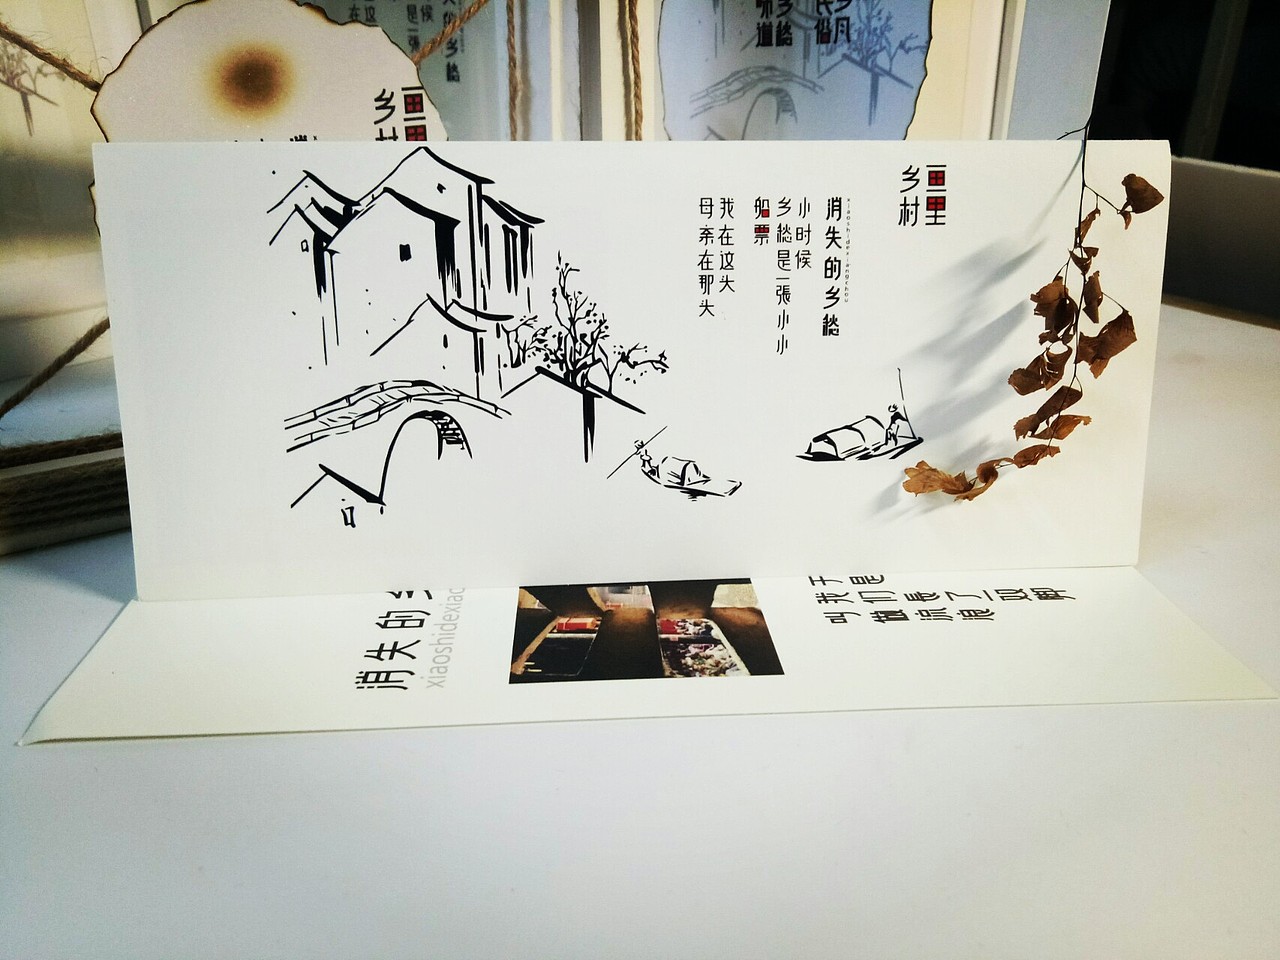 画里
乡村
xiaoshidexiangchou
消失的乡愁
小时候
乡愁是一張小小
船票
我在这头
母亲在那头
消失的
xiaoshidexiac
于是
我们長了一双脚
画里
乡村
的乡愁
候
是一張
味道
乡愁
民俗